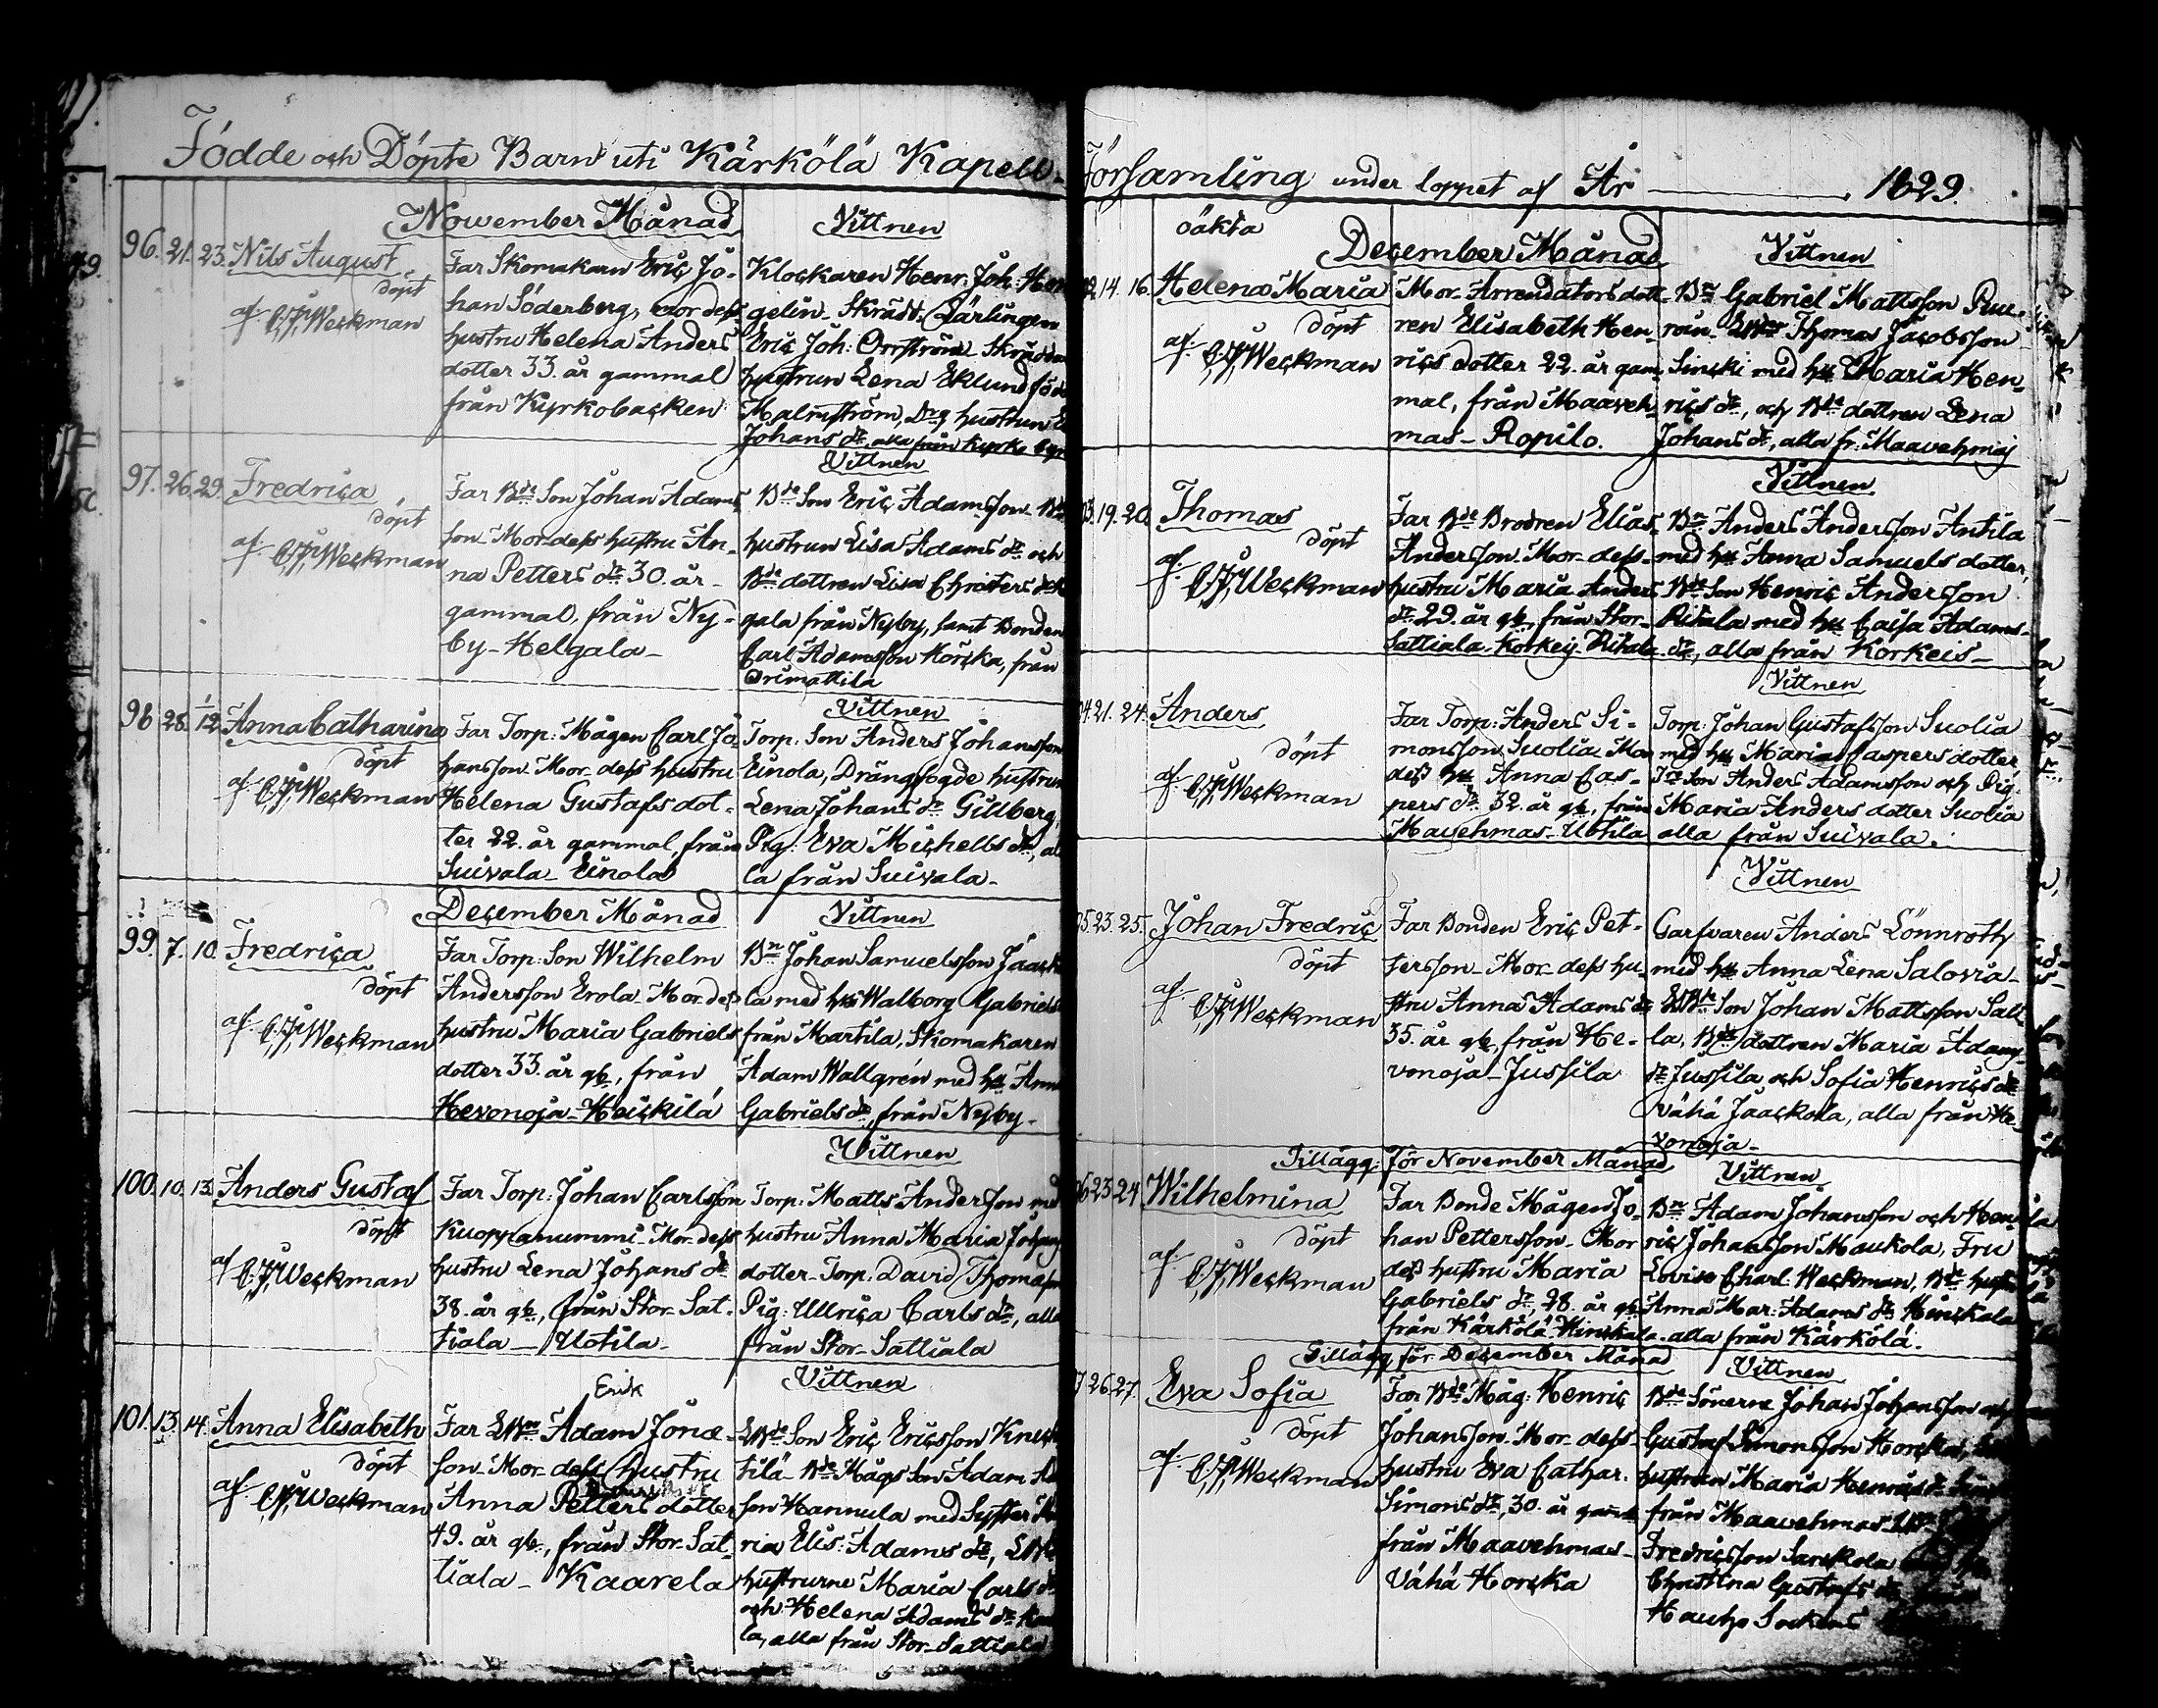 Födde och Döpte Barn uti Kärkölä Kapell-
November Månad Vittnen
96. 21. 23. Nils August
döpt
af C. J. Weckman
Far Skomakarn Eric Jo-
han Söderberg, mor dess
hustru Helena Anders
dotter 33. år gammal
från Kyrkobacken
Klockaren Henr. Joh: Hen
gelin. Skrädd. Lärlingen
Eric Joh: Orrström Skrädda
hustrun Lena Eklund föd
Malmström, Drg hustrun
Johans dr, alla från Kyrko by
Vittnen
97. 26. 29. Fredrica
döpt
af C. J. Weckman
Far Bde Son Johan Adams
son Mor dess hustru An-
na Petters dr 30. år
gammal, från Ny-
by- Helgala-
Bde Son Eric Adamsson Bde
hustrun Lisa Adams dr och
Bde dottren Lisa Christers dr
gala från Nyby, samt Bonden
Carl Adamsson Horcka, från
Orimattila
Vittnen
98 28. 1/12 Anna Catharina
döpt
af C. J. Weckman
Far Torp: Mågen Carl Jo-
hansson Mor dess hustru
Helena Gustafs dot-
ter 22. år gammal, från
Suivala- Einola
Torp: Son Anders Johansson
Einola, Drängfogde hustrun
Lena Johans dr Gillberg,
Pig: Eva Michells dr, al
la från Suivala-
December Månad Vittnen
99. 7. 10. Fredrica
döpt
af C. J. Weckman
Far Torp: Son Wilhelm
Andersson Erola Mor dess
hustru Maria Gabriels
dotter 33. år gl, från
Hevonoja- Heickilä
Bn Johan Samuelsson Jaack
la med hu Walborg Gabriels
från Martila, Skomakaren
Adam Wallgrén med hu Anna
Gabriels dr, från Nyby-
Vittnen
100. 10. 13. Anders Gustaf
döpt
af C. J. Weckman
Far Torp: Johan Carlsson
Kuoppanummi Mor dess
hustru Lena Johans dr
38. år gl, från Stor Sat-
tiala- Uotila-
Torp: Matts Andersson med
hustru Anna Maria Johans
dotter Torp. David Thomasson
Pig: Ullrica Carls dr, alla
från Stor Sattiala
Vittnen
Erik
101. 13. 14. Anna Elisabeth
döpt
af C. J. Weckman
Far Adam Jona-
son Mor dess hustru
Anna Petters dotter
49. år gl, från Stor Sat-
tiala- Kaarela
Son Eric Ericsson
tilä Bde Mågs Son Adam
son Hannula med Syster
ria Elis: Adams dr,
hustrurne Maria Carls dr
och Helena Adams dr
la, alla från Stor Sattiala
Församling under loppet af År 1829
oäkta
December Månad Vittnen
14. 16. Helena Maria
döpt
af C. J. Weckman
Mor Arrendators dott-
ren Elisabeth Hen-
rics dotter 22. år gam-
mal, från Maaveh-
mas- Ropilo.
Bn Gabriel Mattsson
Thomas Jacobsson
Sincki med hu Maria Hen-
rics dr, och Bde dottren Lena
Johans dr, alla fr: Maavehmaj
Vittnen
19. 20. Thomas
döpt
af C. J. Weckman
Far Bde Brodren Elias
Andersson Mor dess
hustru Maria Anders
dr 29. år gl, från Stor-
Sattiala
Bn Anders Andersson Antila
med hu Anna Samuels dotter,
Bde Son Henric Andersson
med hu Caisa Adams-
dr, alla från Korkeis-
Vittnen
21. 24. Anders
döpt
af C. J. Weckman
Far Torp: Anders Si-
monsson Suolia Mor
dess hu Anna Cas-
pers dr 32. år gl, från
Mavehmas- Uotila
Torp: Johan Gustafsson Suolia
med hu Maria Caspers dotter
Son Anders Adamsson och Pig:
Maria Anders dotter Suolia
alla från Suivala.
Vittnen
23. 25. Johan Fredric
döpt
af C. J. Weckman
Far Bonden Eric Pet-
tersson- Mor dess hu-
stru Anna Adams dr
35. år gl, från He-
vonoja- Jussila
Garfvaren Anders Lönnroth
med hu Anna Lena Salovia-
Son Johan Mattsson
la, Bde dottren Maria Adams
dr Jussila, och Sofia Henrics dr
Vähä Jaackola, alla från He-
vonoja-
Tillägg: för November Månad
Vittnen
23 24 Wilhelmina
döpt
af C. J. Weckman
Far Bonde Mågen Jo-
han Pettersson- Mor
dess hustru Maria
Gabriels dr, 28. år gl
från Kärkölä Hinckala
Bn Adam Johansson och Hen-
ric Johansson Maukola, Fru
Lovisa Charl. Weckman, Bde hustru
Anna Mar: Adams dr Hinckala
alla från Kärkölä.
Tillägg för December Månad
Vittnen
26. 27. Eva Sofia
döpt
af C. J. Weckman
Far Bde Måg: Henric
Johansson Mor dess
hustru Eva Cathar.
Simons dr, 30. år gaml
från Maavehmas-
Vähä Horcka
Bde Sönerne Johan Johansson och
Gustaf Simonsson Horcka,
hustrun Maria Henrics dr
från Maavehmas
Fredricsson
Christina Gustafs dr
Hauho Socken